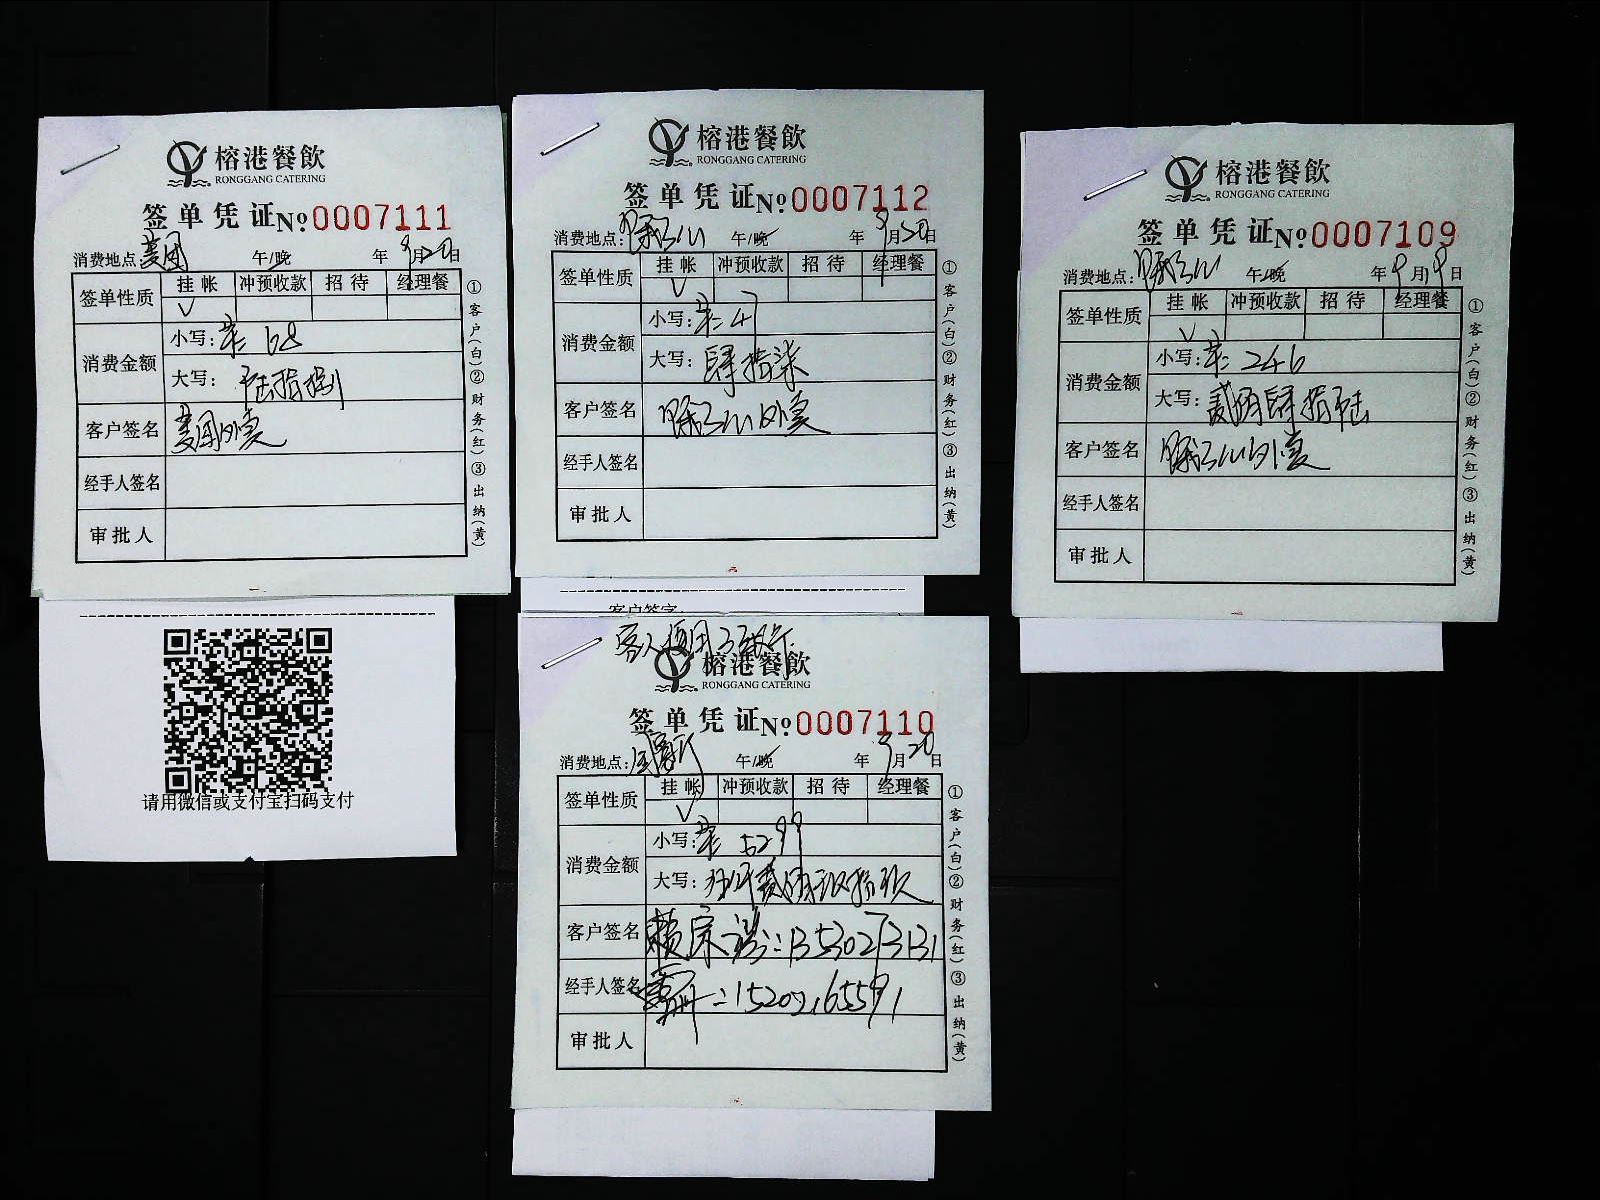 榕港餐飲
RONGGANG CATERING
签单凭证 No 0007111
消费地点: 美团 午/晚 年 9月20日
签单性质 挂帐 冲预收款 招待 经理餐
√
消费金额 小写: 68
大写: 陆拾捌
客户签名 美团外卖
经手人签名
审批人
①客户(白)②财务(红)③出纳(黄)
请用微信或支付宝扫码支付
榕港餐飲
RONGGANG CATERING
签单凭证 No 0007112
消费地点: 午/晚 年 9月20日
签单性质 挂帐 冲预收款 招待 经理餐
√
消费金额 小写: 47
大写: 肆拾柒
客户签名 外卖
经手人签名
审批人
①客户(白)②财务(红)③出纳(黄)
客户签字:
榕港餐飲
RONGGANG CATERING
签单凭证 No 0007110
消费地点: 午/晚 年 9月20日
签单性质 挂帐 冲预收款 招待 经理餐
√
消费金额 小写: 5299
大写: 伍仟贰佰玖拾玖
客户签名 赖宗 : 13530273131
经手人签名 : 15202165591
审批人
①客户(白)②财务(红)③出纳(黄)
榕港餐飲
RONGGANG CATERING
签单凭证 No 0007109
消费地点: 午/晚 年 9月19日
签单性质 挂帐 冲预收款 招待 经理餐
√
消费金额 小写: 246
大写: 贰佰肆拾陆
客户签名 外卖
经手人签名
审批人
①客户(白)②财务(红)③出纳(黄)